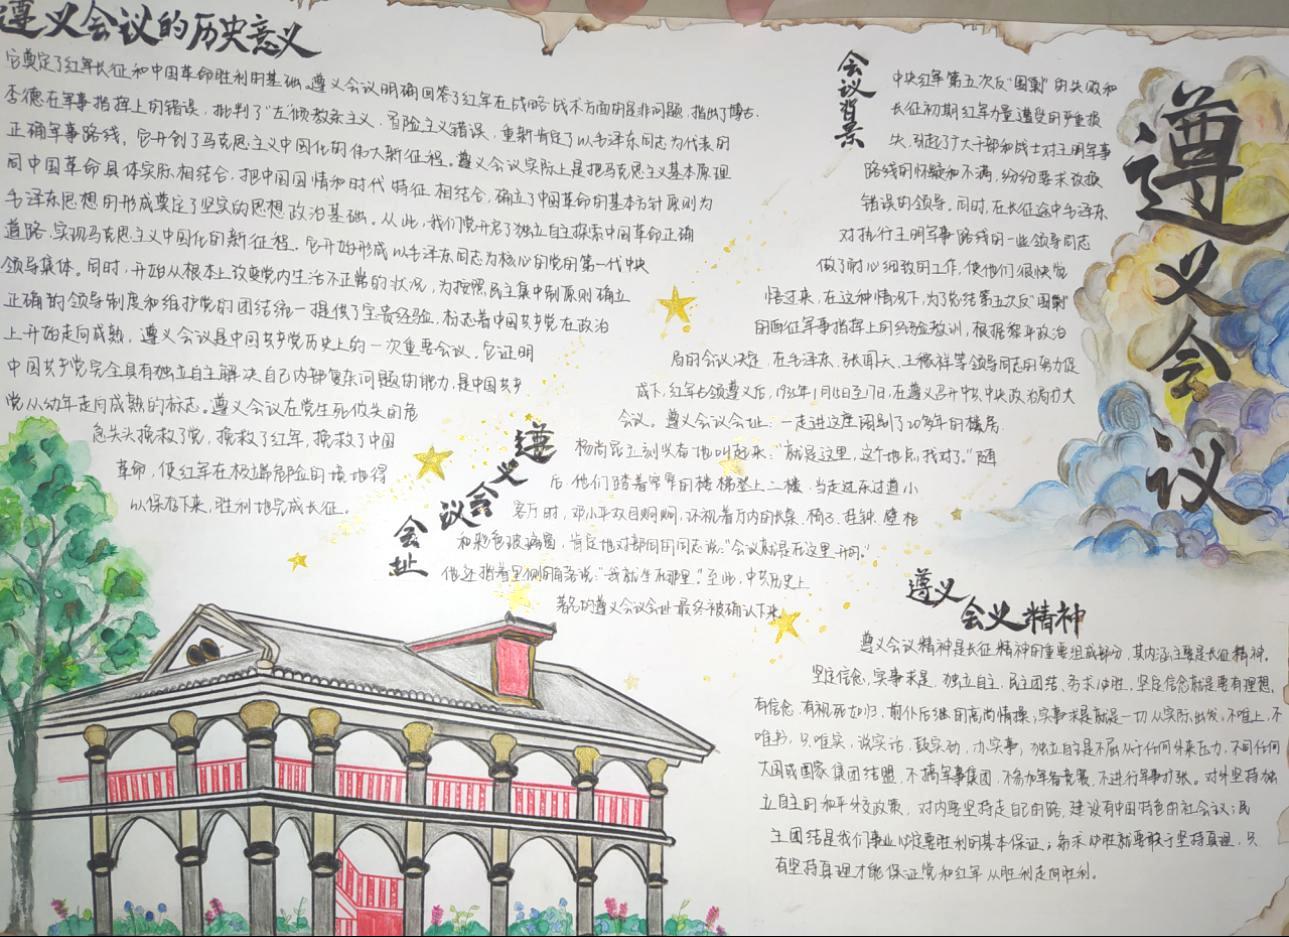 遵义会议的历史意义
它奠定了红军长征和中国革命胜利的基础。遵义会议明确回答了红军在战略战术方面的是非问题，指出了博古、
李德在军事指挥上的错误，批判了"左"倾教条主义、冒险主义错误，重新肯定了以毛泽东同志为代表的
正确军事路线。它开创了马克思主义中国化的伟大新征程。遵义会议实际上是把马克思主义基本原理
同中国革命具体实际相结合，把中国国情和时代特征相结合，确立了中国革命的基本方针原则为
毛泽东思想的形成奠定了坚实的思想政治基础。从此，我们党开启了独立自主探索中国革命正确
道路，实现马克思主义中国化的新征程。它开始形成以毛泽东同志为核心的党的第一代中央
领导集体。同时，开始从根本上改变党内生活不正常的状况，为按照民主集中制原则确立
正确的领导制度和维护党的团结统一提供了宝贵经验，标志着中国共产党在政治
上开始走向成熟，遵义会议是中国共产党历史上的一次重要会议。它证明
中国共产党完全具有独立自主解决自己内部复杂问题的能力，是中国共产
党从幼年走向成熟的标志。遵义会议在党生死攸关的危
急关头挽救了党，挽救了红军，挽救了中国
革命，使红军在极端危险的境地得
以保存下来，胜利地完成长征。
会议背景
中央红军第五次反"围剿"的失败和
长征初期红军力量遭受的严重损
失，引起了广大干部和战士对王明军事
路线的怀疑和不满，纷纷要求改换
错误的领导。同时，在长征途中毛泽东
对执行王明军事路线的一些领导同志
做了耐心细致的工作，使他们很快觉
悟过来，在这种情况下，为了总结第五次反"围剿"
的西征军事指挥上的经验教训，根据黎平政治
局的会议决定，在毛泽东、张闻天、王稼祥等领导同志的努力促
成下，红军占领遵义后，1935年1月15日至17日，在遵义召开中共中央政治局扩大
会议。遵义会议会址：一走进这座阔别了20多年的楼房
杨尚昆立刻兴奋地叫起来："就是这里，这个地点，我对了。"随
后，他们踏着窄窄的楼梯登上二楼，当走过东过道小
客厅时，邓小平双目炯炯，环视着厅内的长桌、椅子、挂钟、壁柜
和彩色玻璃窗，肯定地对陪同的同志说："会议就是在这里开的。"
他还指着里侧的角落说："我就坐在那里。"至此，中共历史上
著名的遵义会议会址最终被确认下来。
遵义会议
会址
遵义会议
遵义
会义精神
遵义会议精神是长征精神的重要组成部分，其内涵主要是长征精神。
坚定信念，实事求是，独立自主，民主团结，务求必胜，坚定信念就是要有理想，
有信念，有视死如归，前仆后继的高尚情操；实事求是就是一切从实际出发，不唯上，不
唯书，只唯实，说实话，鼓实劲，办实事；独立自主是不屈从于任何外来压力，不同任何
大国或国家集团结盟，不搞军事集团，不参加军备竞赛，不进行军事扩张。对外坚持独
立自主的和平外交政策，对内要坚持走自己的路，建设有中国特色的社会议；民
主团结是我们事业必定要胜利的基本保证；务求必胜就要敢于坚持真理，只
有坚持真理才能保证党和红军从胜利走向胜利。